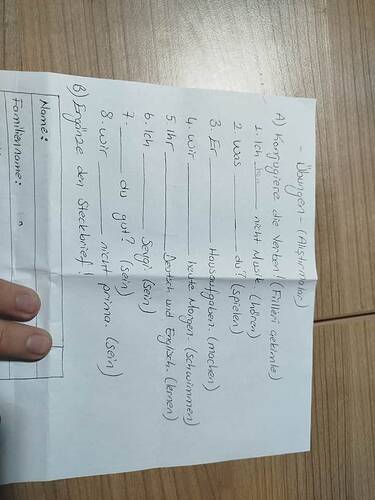 - Übungen - (Alıştırmalar)
A) Konjugiere die Verben! (Fiilleri çekimle)
1. Ich ______ nicht Musik. (hören)
2. Was ______ du? (spielen)
3. Er ______ Hausaufgaben. (machen)
4. Wir ______ heute Morgen. (schwimmen)
5. Ihr ______ Deutsch und Englisch. (lernen)
6. Ich ______ Sevgi. (sein)
7. ______ du gut? (sein)
8. Wir ______ nicht prima. (sein)
B) Ergänze den Steckbrief!
Name:
Familienname: